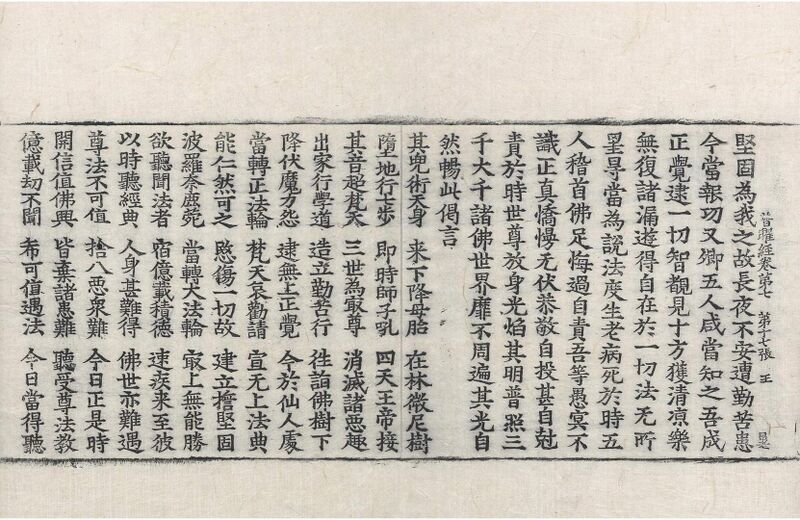 普曜經卷第七 第十七張 王
堅固為我之故長夜不安遭勤苦患
今當報功又卿五人咸當知之吾成
正覺逮一切智覩見十方獲清凉樂
無復諸漏遊得自在於一切法无所
罣㝵當為說法度生老病死於時五
人稽首佛足悔過自責吾等愚冥不
識正真憍慢无伏恭敬自投甚自尅
責於時世尊放身光焰其明普照三
千大千諸佛世界靡不周遍其光自
然暢此偈言
其兜術天身 来下降母胎 在林微尼樹
墮地行七步 即時師子吼 四天王帝接
其音超梵天 三世為㝡尊 消滅諸惡趣
出家行學道 造立勤苦行 徃詣佛樹下
降伏魔力怨 逮無上正覺 今於仙人處
當轉正法輪 梵天哀勸請 宣无上法典
能仁然可之 愍傷一切故 建立擔堅固
波羅奈鹿苑 當轉大法輪 㝡上無能勝
欲聽聞法者 宿億載積德 速疾来至彼
以時聽經典 人身甚難得 佛世亦難遇
尊法不可值 捨八惡衆難 今日正是時
開信值佛興 皆棄諸患難 聽受尊法教
億載劫不聞 希可值遇法 今日當得聽